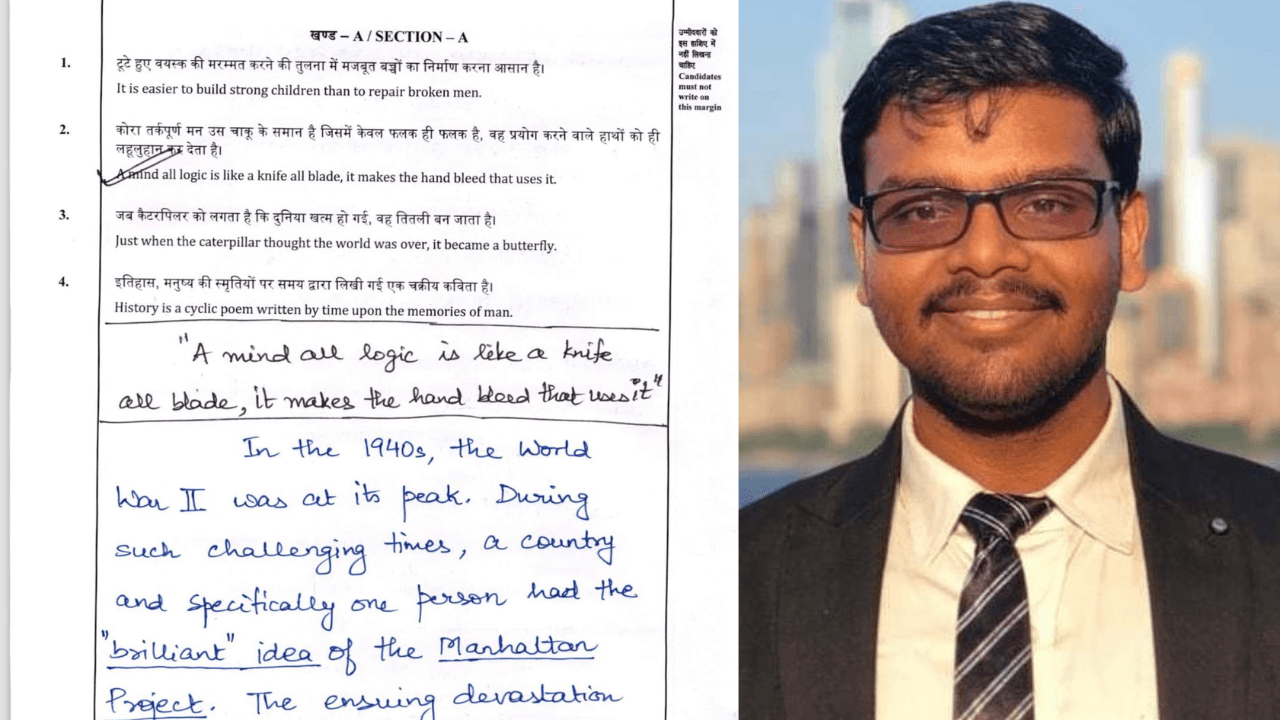 खण्ड – A / SECTION – A
उम्मीदवारों को
इस हाशिए में
नहीं लिखना
चाहिए
Candidates
must not
write on
this margin
1. टूटे हुए वयस्क की मरम्मत करने की तुलना में मजबूत बच्चों का निर्माण करना आसान है।
It is easier to build strong children than to repair broken men.
2. कोरा तर्कपूर्ण मन उस चाकू के समान है जिसमें केवल फलक ही फलक है, वह प्रयोग करने वाले हाथों को ही
लहूलुहान कर देता है।
A mind all logic is like a knife all blade, it makes the hand bleed that uses it.
3. जब कैटरपिलर को लगता है कि दुनिया खत्म हो गई, वह तितली बन जाता है।
Just when the caterpillar thought the world was over, it became a butterfly.
4. इतिहास, मनुष्य की स्मृतियों पर समय द्वारा लिखी गई एक चक्रीय कविता है।
History is a cyclic poem written by time upon the memories of man.
"A mind all logic is like a knife
all blade, it makes the hand bleed that uses it"
In the 1940s, the World
War II was at its peak. During
such challenging times, a country
and specifically one person had the
"brilliant" idea of the Manhattan
Project. The ensuing devastation